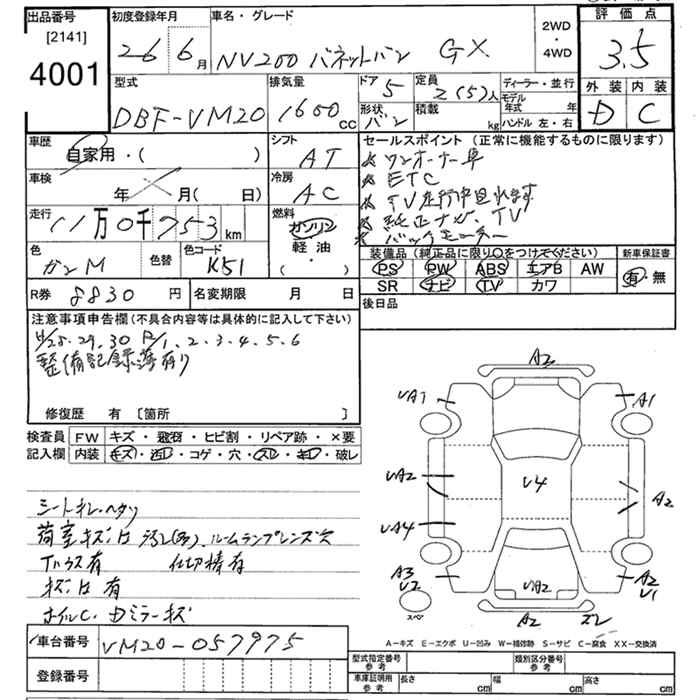 出品番号
[2141]
4001
初度登録年月
26 6月
車名・グレード
NV200 バネットバン GX
2WD
・
4WD
評価点
3.5
型式
DBF-VM20
排気量
1600 CC
ドア 5
形状 バン
定員 2(5)人
積載 kg
ディーラー・並行
モデル年式 年
ハンドル 左・右
外装 内装
D C
車歴
自家用・( )
シフト
AT
車検
年 月(日)
冷房
AC
走行
11万0千753km
燃料
ガソリン
軽油
・( )
色
ガンM
色替
色コード
K51
R券 8830円
名変期限 月 日
セールスポイント (正常に機能するものに限ります)
ワンオーナー車
ETC
TV走行中見れます
純正ナビ、TV
バックモニター
装備品 (純正品に限り○をつけてください)
新車保証書
PS PW ABS エアB AW
SR ナビ TV カワ
有・無
後日品
注意事項申告欄 (不具合内容等は具体的に記入して下さい)
H/28.29.30 R/1.2.3.4.5.6
整備記録簿有り
修復歴 有 [箇所 ]
検査員
記入欄
FW キズ・飛石・ヒビ割・リペア跡・×要
内装 キズ・汚レ・コゲ・穴・スレ・キレ・破レ
シートキレ・ヘタリ
荷室キズ・凹 汚レ(多)、ルームランプレンズ欠
Tハウス有 仕切棒有
キズ・凹 有
ホイルC・Dミラーキズ
車台番号 VM20-057975
登録番号
A2
UA1
A1
UA2
U4
A2
UA4
A3
U2
UA2
A2
U1
スペア
A2
ズレ
A-キズ E-エクボ U-凹み W-補修跡 S-サビ C-腐食 XX-交換済
型式指定番号
参考
類別区分番号
参考
車庫証明用
参考
長さ cm 幅 cm 高さ cm